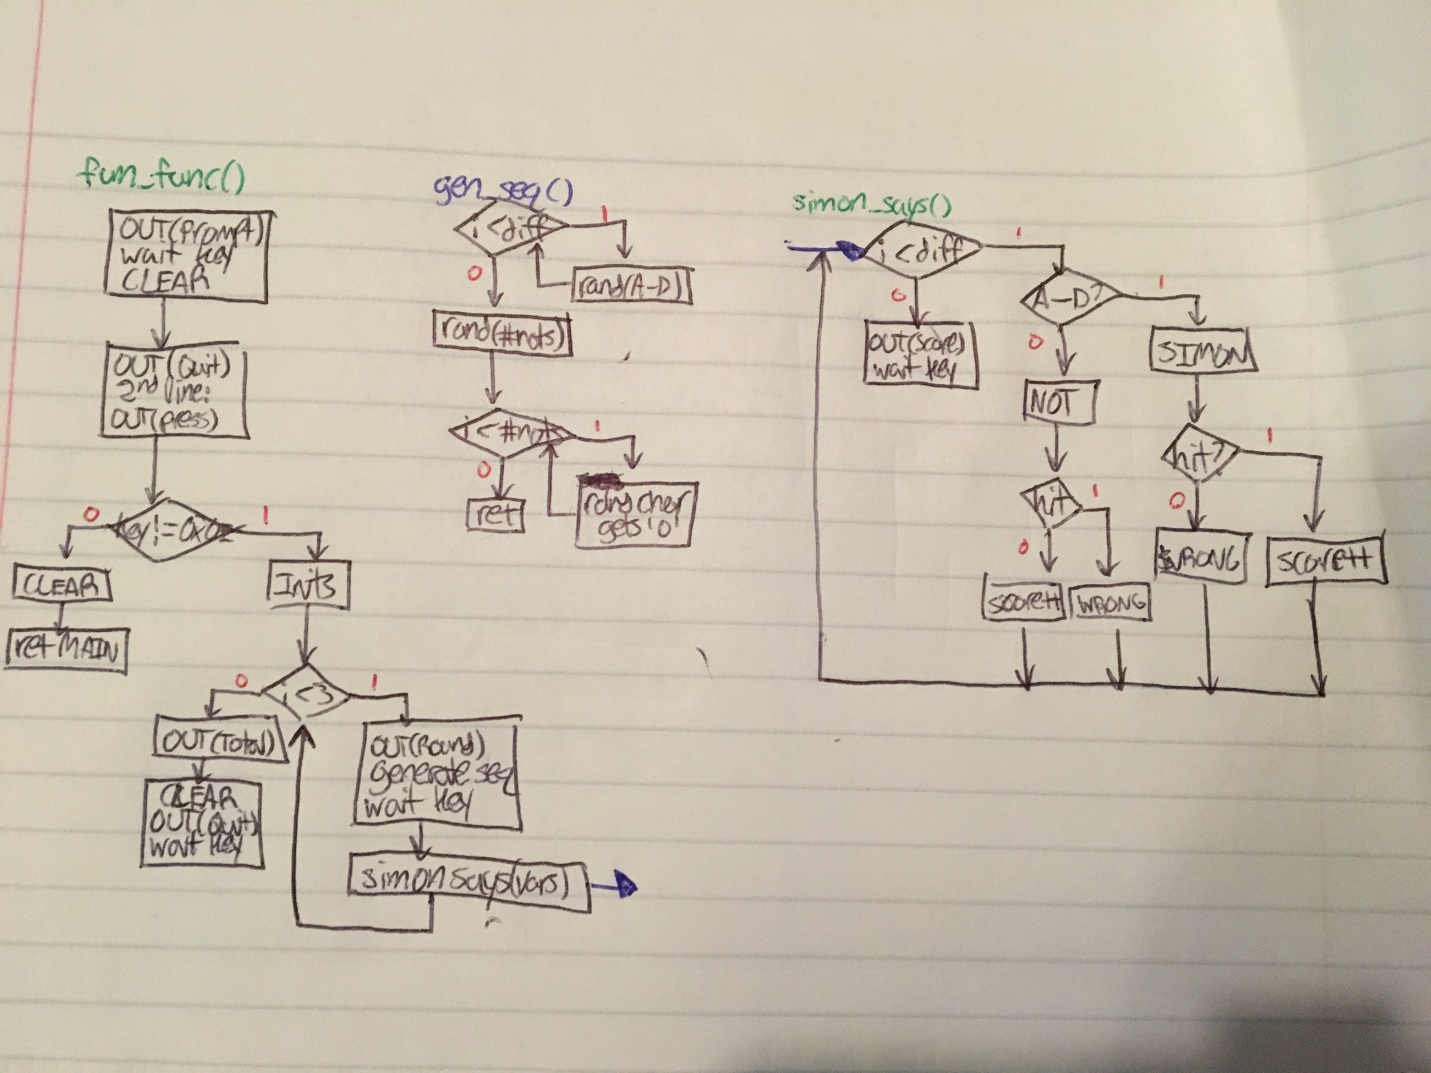 fum_func()
OUT(Prompt)
wait key
CLEAR
OUT(Quit)
2nd line:
OUT(press)
0
1
CLEAR
ret MAIN
Inits
i<3
0
1
OUT(Total)
CLEAR
OUT(Quit)
wait key
OUT(Round)
generate seq
wait key
simon says(vars)
gen_seq()
i<diff
1
0
rand(A-D)
rand(#nots)
i<#nots
1
0
ret
char
gets '0'
simon_says()
i<diff
1
0
OUT(score)
wait key
A-D?
1
0
SIMON
NOT
hit?
1
0
hit
1
0
WRONG
score++
score++
WRONG